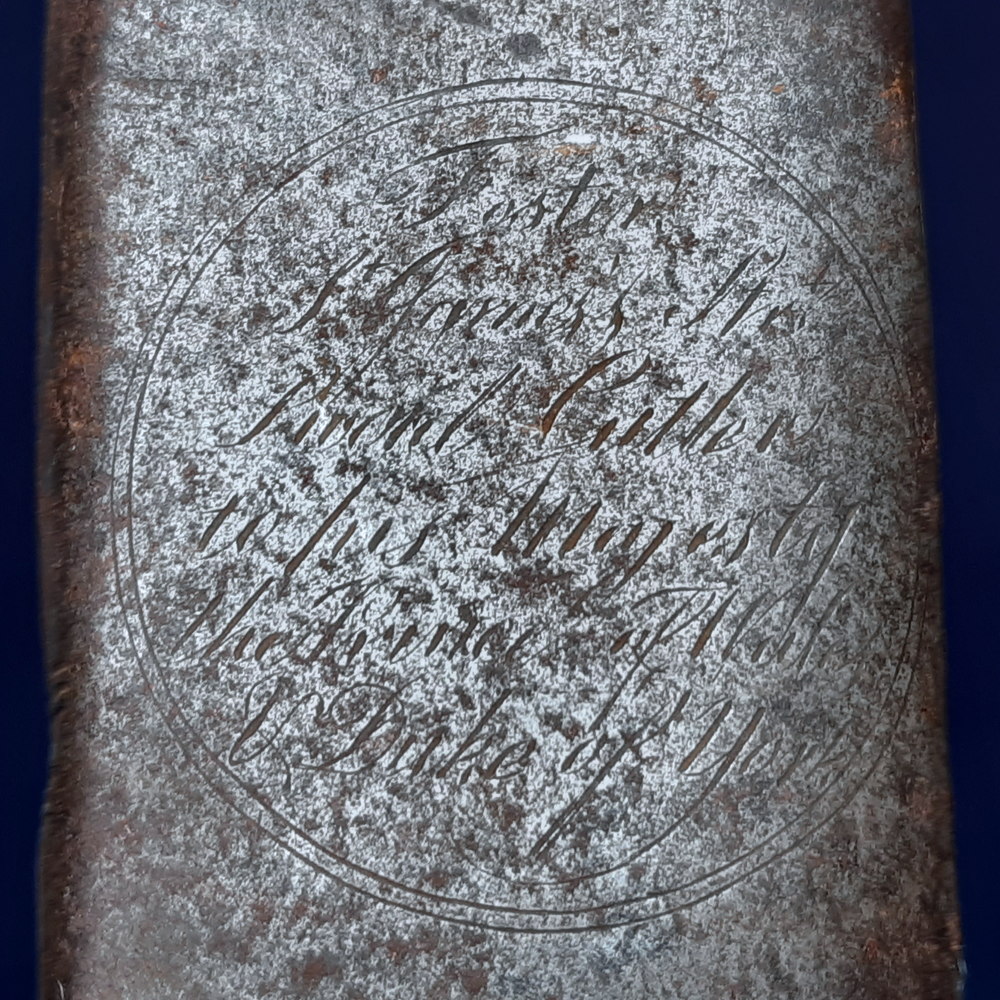 Foster
St James's Str
Sword Cutler
to his Majesty
the Prince of Wales
& Duke of York